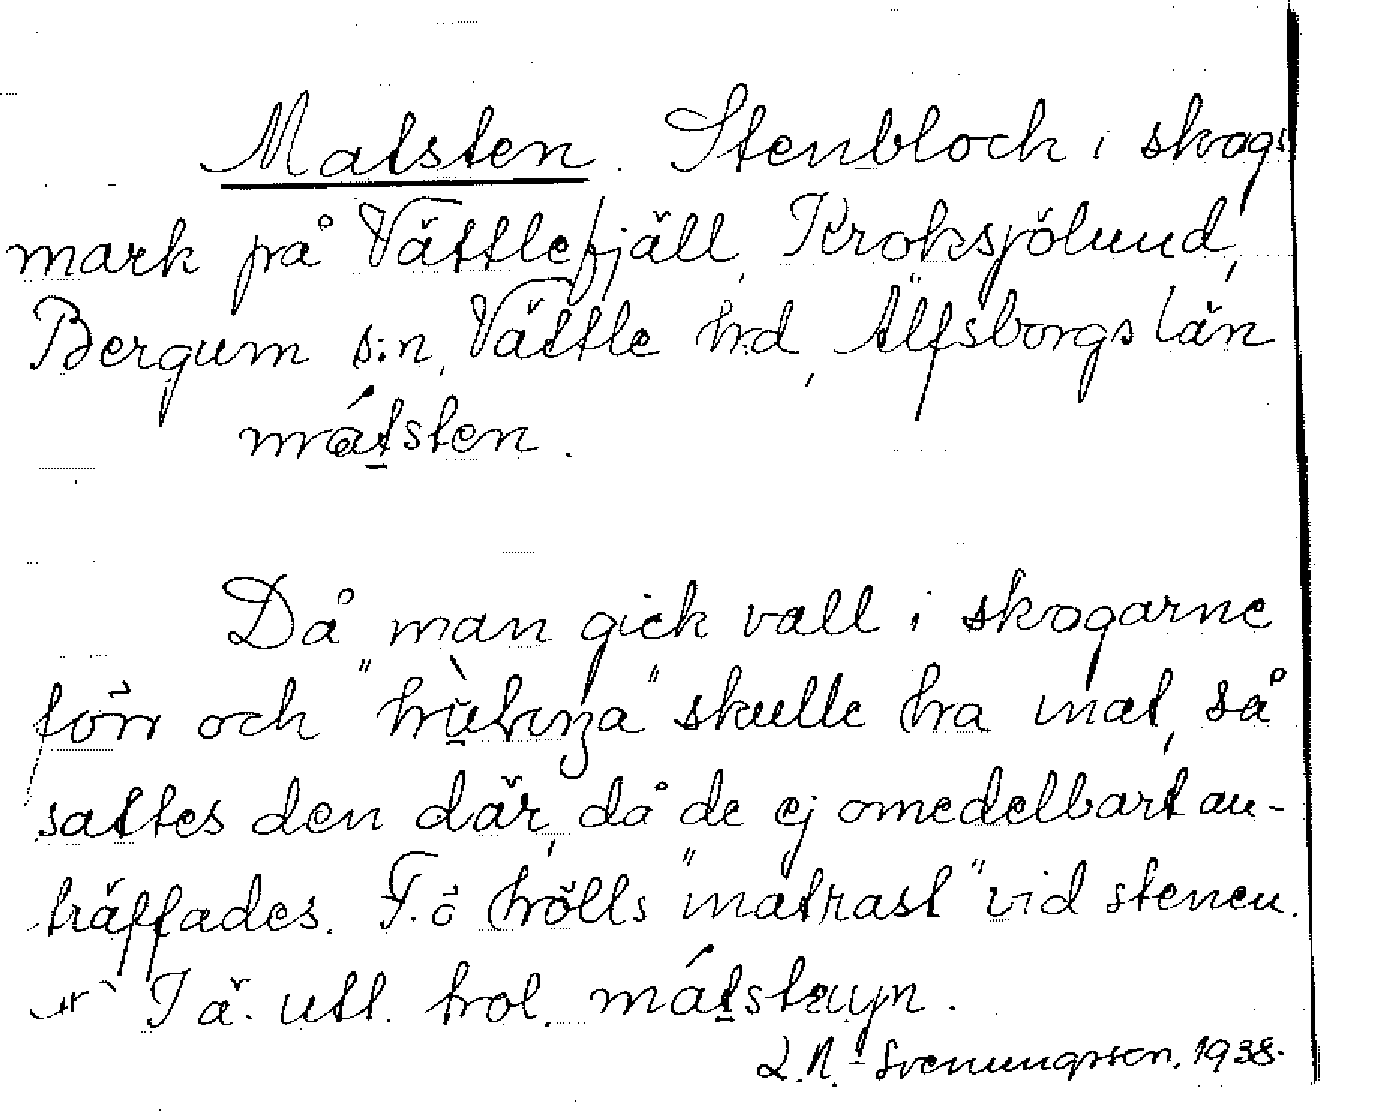 Matsten. Stenblock i skogs
mark på Vättlefjäll, Kroksjölund,
Bergum s:n, Vättle hd, Älfsborgs län
mátsten.
Då man gick vall i skogarne
förr och " " skulle ha mat, så
sattes den där, då de ej omedelbart an-
träffades. F. ö hölls "matrast" vid stenen.
I ä. utt. hol. mátstäyn.
L.N. Svenungsson. 1938.